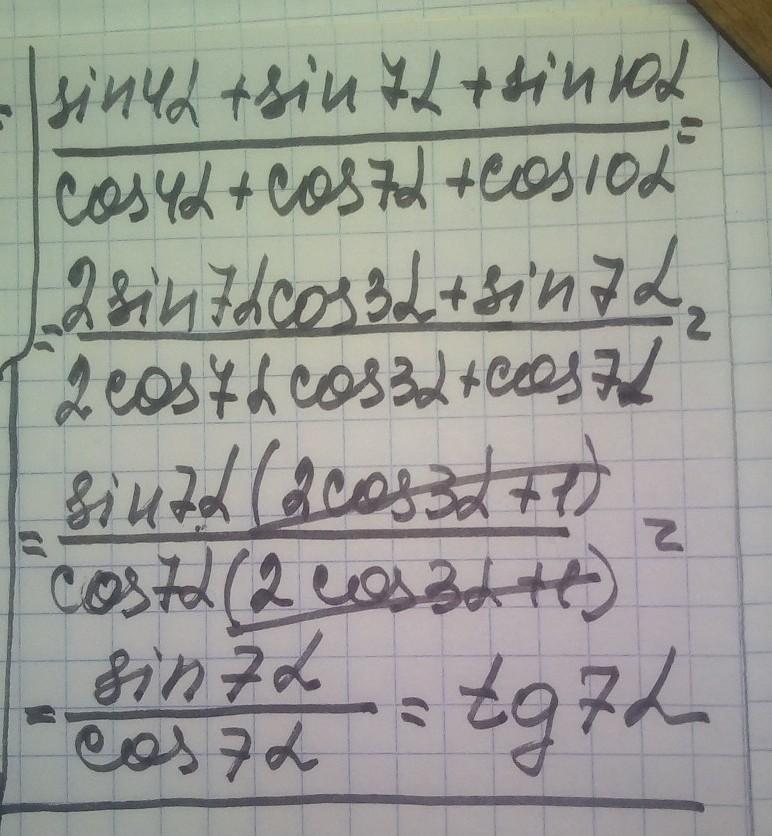 sin4α + sin7α + sin10α
cos4α + cos7α + cos10α =
= 2sin7αcos3α + sin7α
2cos7αcos3α + cos7α =
= sin7α(2cos3α + 1)
cos7α(2cos3α + 1) =
= sin7α
cos7α = tg7α